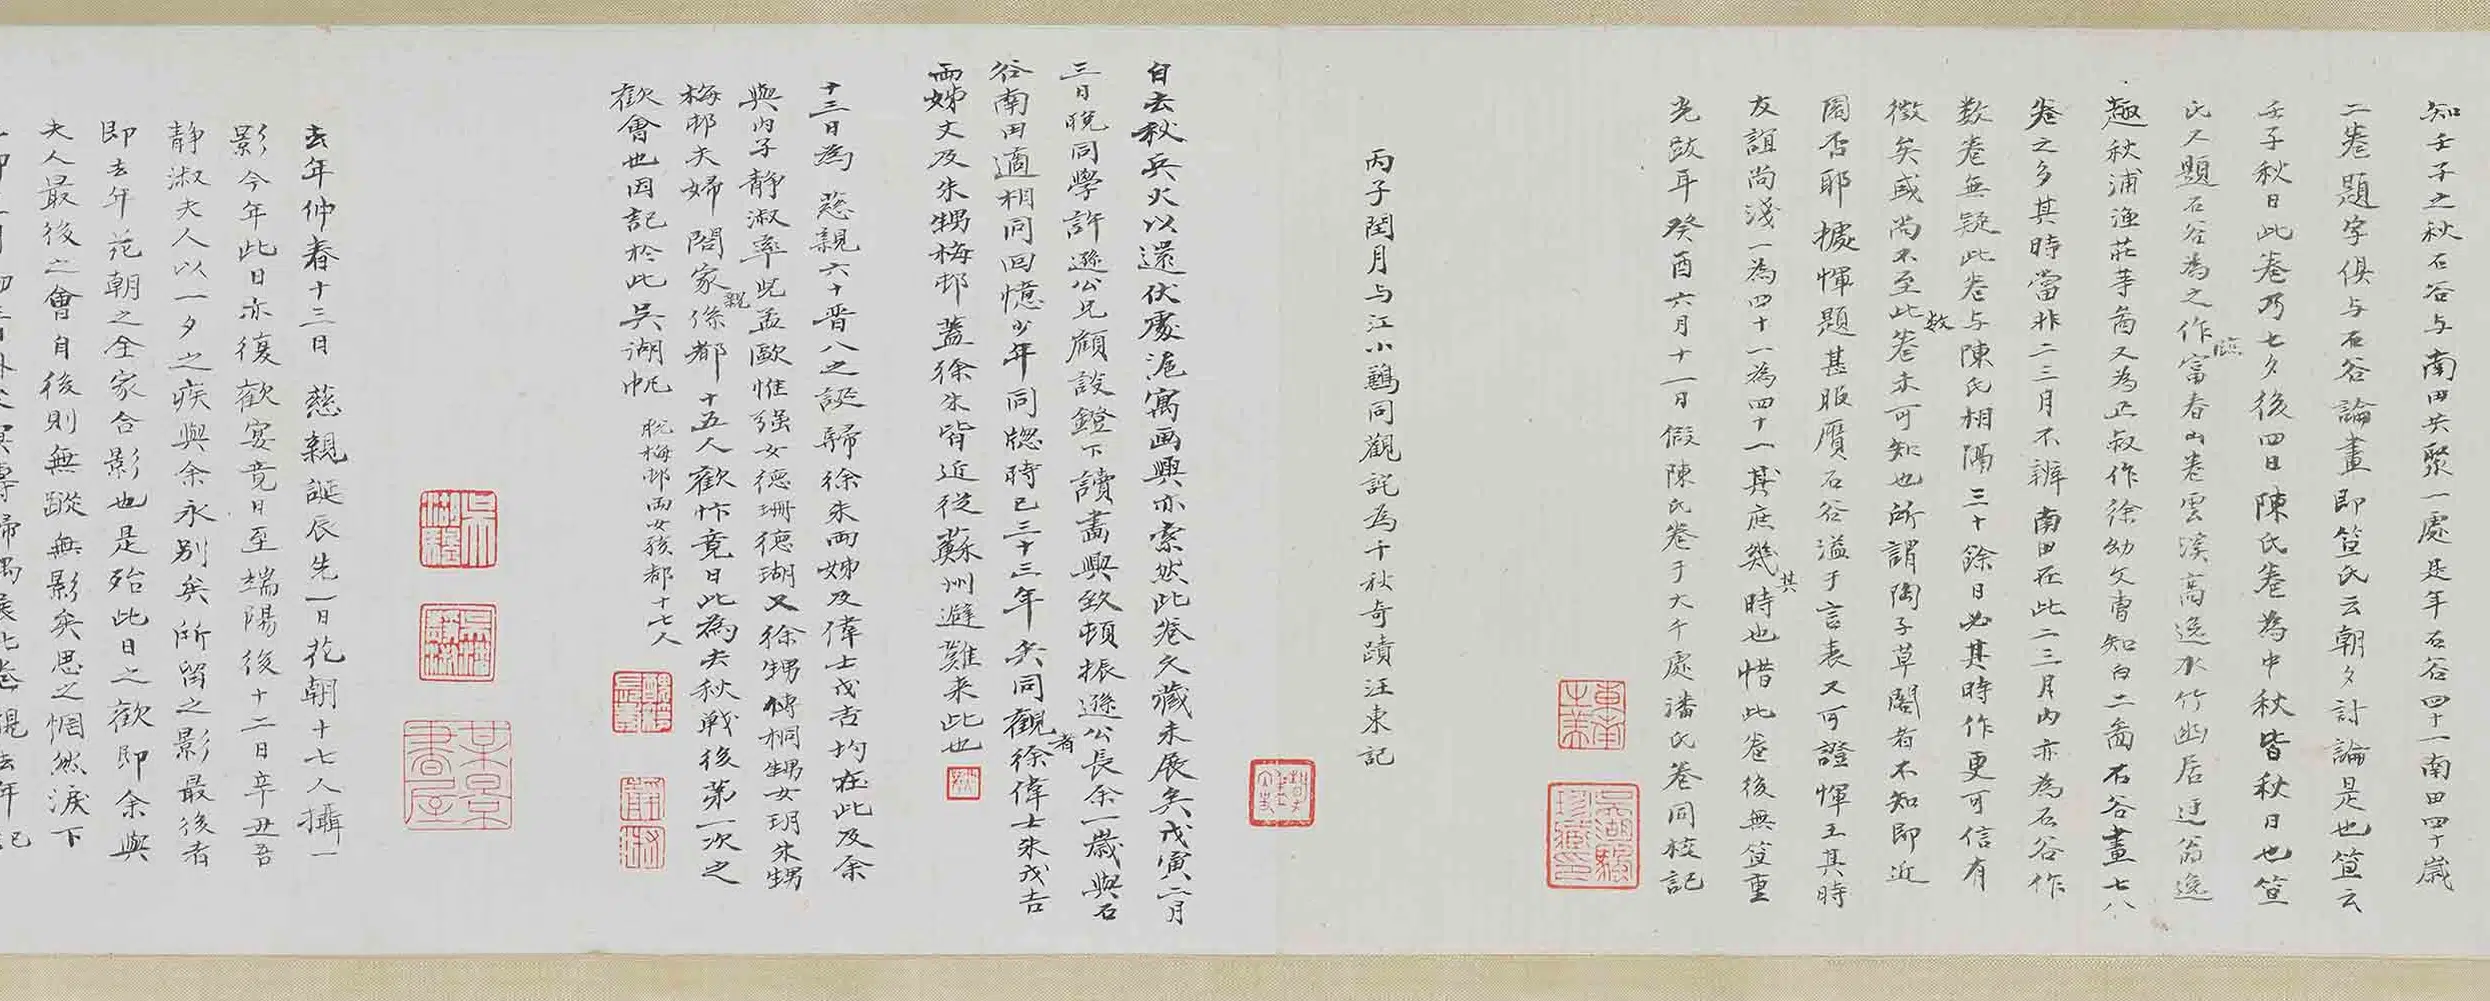 知壬子之秋石谷与南田共聚一處是年石谷四十一南田四十歲
二卷題字俱与石谷論畫即笪氏云朝夕討論是也笪云
壬子秋日此卷乃七夕後四日陳氏卷為中秋皆秋日也笪
氏又題石谷為之作臨富春山卷雲溪高逸水竹幽居迂翁逸
趣秋浦漁莊等啚又為正叔作徐幼文曹知白二啚石谷畫七八
卷之多其時當非二三月不辨南田在此二三月內亦為石谷作
数卷無疑此卷与陳氏相隔三十餘日必其時作更可信有
徵矣或尚不至此数卷未可知也所謂陶子草閣者不知即近
園否耶據惲題甚服膺石谷溢于言表又可證惲王其時
友誼尚淺一為四十一為四十一其庶幾其時也惜此卷後無笪重
光跋耳癸酉六月十一日假陳氏卷于大千處潘氏卷同校記
丙子閏月与江小鶼同觀詫為千秋奇蹟汪東記
自去秋兵火以還伏處滬寓画興亦索然此卷久藏未展矣戊寅二月
三日晚同學許遜公兄顧談鐙下讀畵興致頓振遜公長余一歲與石
谷南田適相同回憶少年同牎時已三十三年矣同觀者徐偉士朱戊吉
兩姊丈及朱甥梅邨蓋徐朱皆近從蘇州避難来此也
十三日為 慈親六十晋八之誕歸徐朱兩姊及偉士戊吉均在此及余
與內子靜淑率兒孟歐惟强女德珊德瑚又徐甥傳桐甥女玥朱甥
梅邨夫婦閤家親係都十五人歡忭竟日此為去秋戰後第一次之
歡會也因記於此吳湖帆
脫梅邨兩女孩都十七人
去年仲春十三日 慈親誕辰先一日花朝十七人攝一
影今年此日亦復歡宴竟日至端陽後十二日辛丑吾
靜淑夫人以一夕之疾與余永別矣所留之影最後者
即去年花朝之全家合影也是殆此日之歡即余與
夫人最後之會自後則無蹤無影矣思之惘然淚下